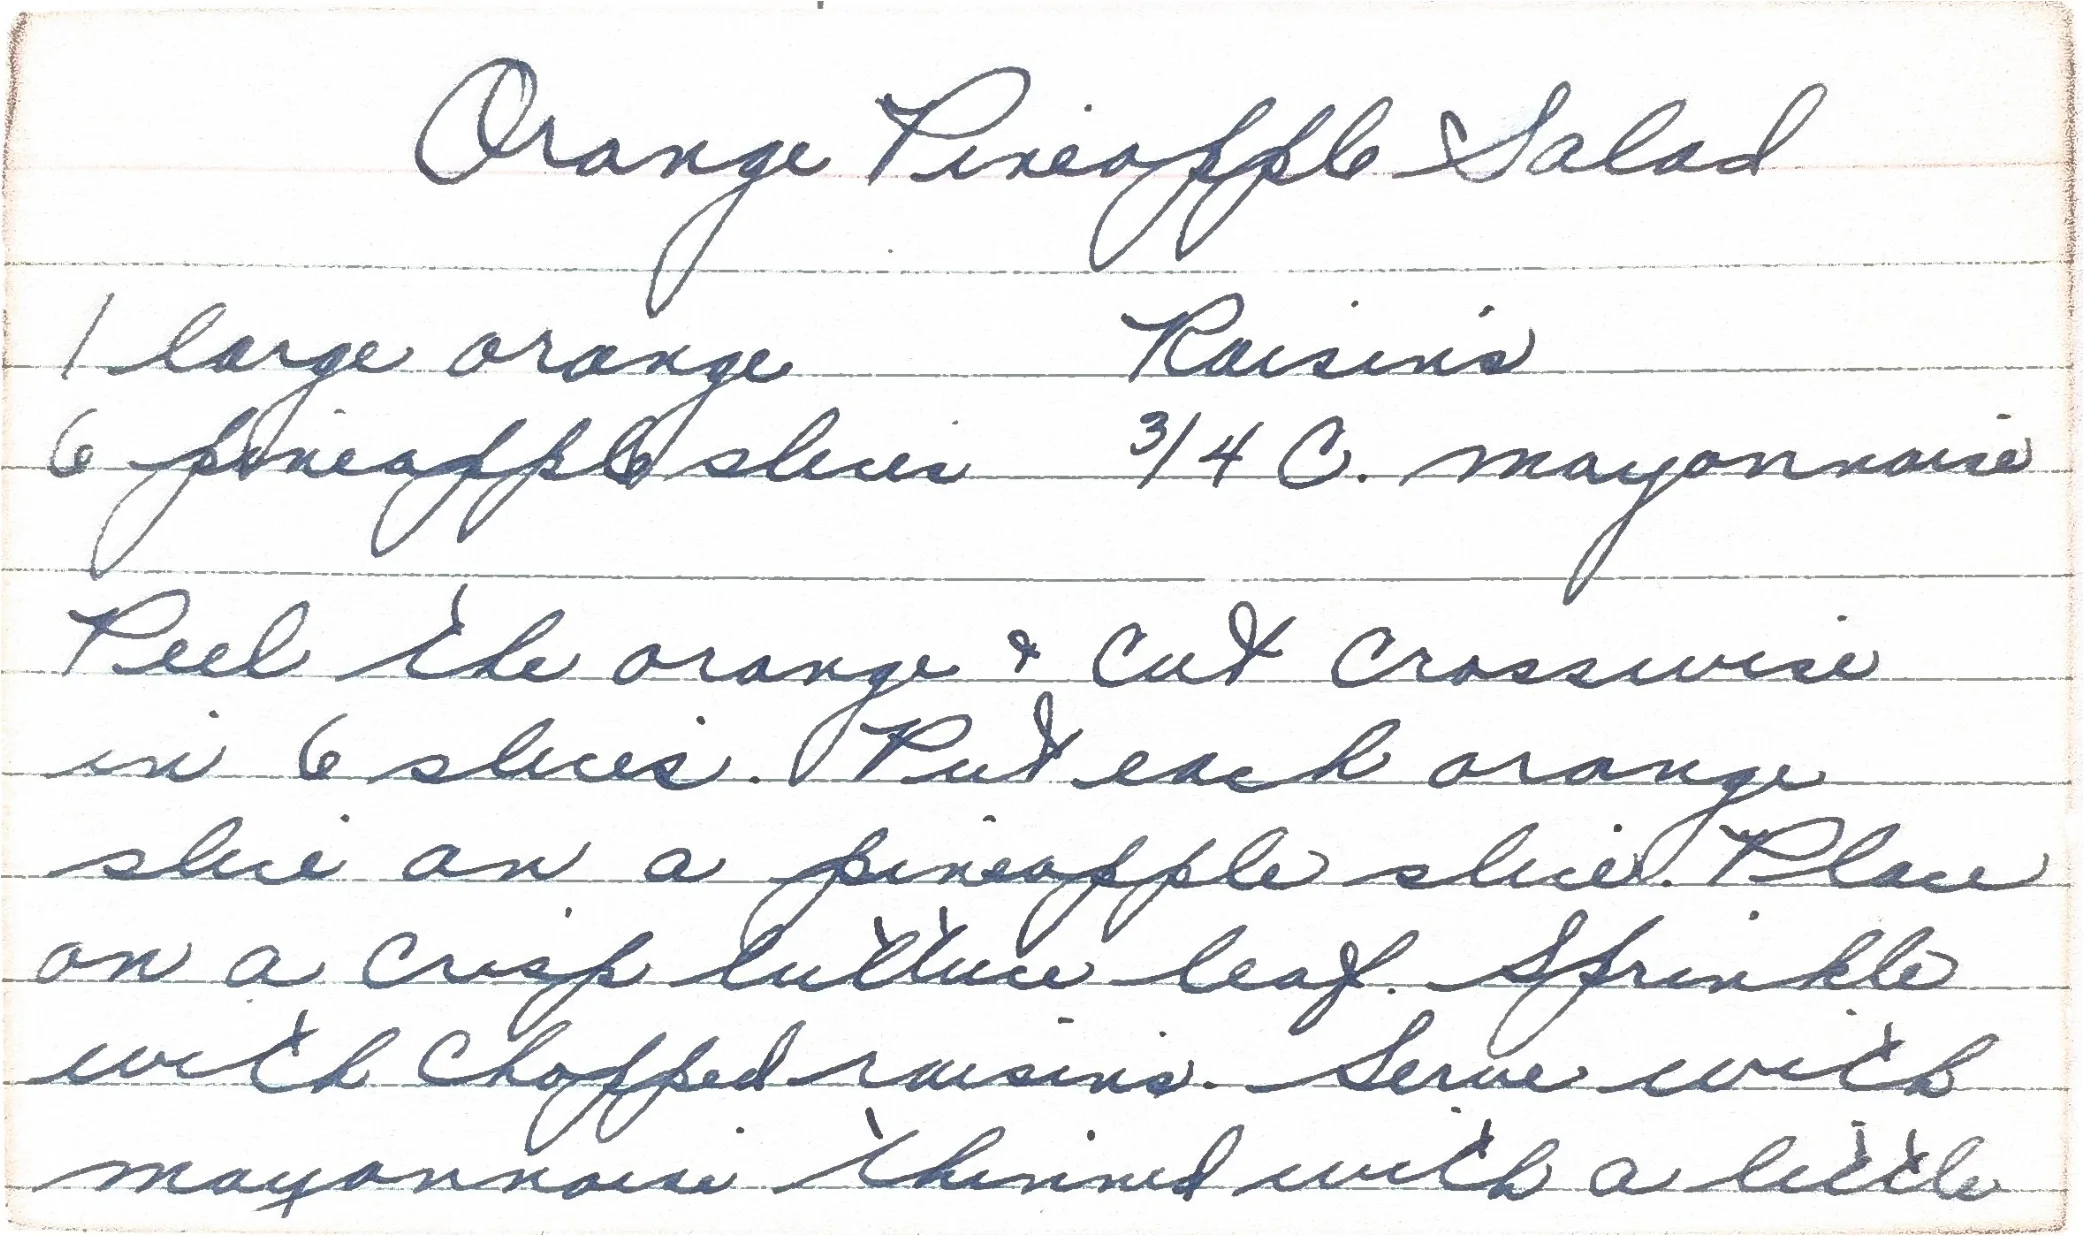 Orange Pineapple Salad
1 large orange Raisins
6 pineapple slices 3/4 C. mayonnaise
Peel the orange & cut crosswise
in 6 slices. Put each orange
slice on a pineapple slice. Place
on a crisp lettuce leaf. Sprinkle
with chopped raisins. Serve with
mayonnaise thinned with a little